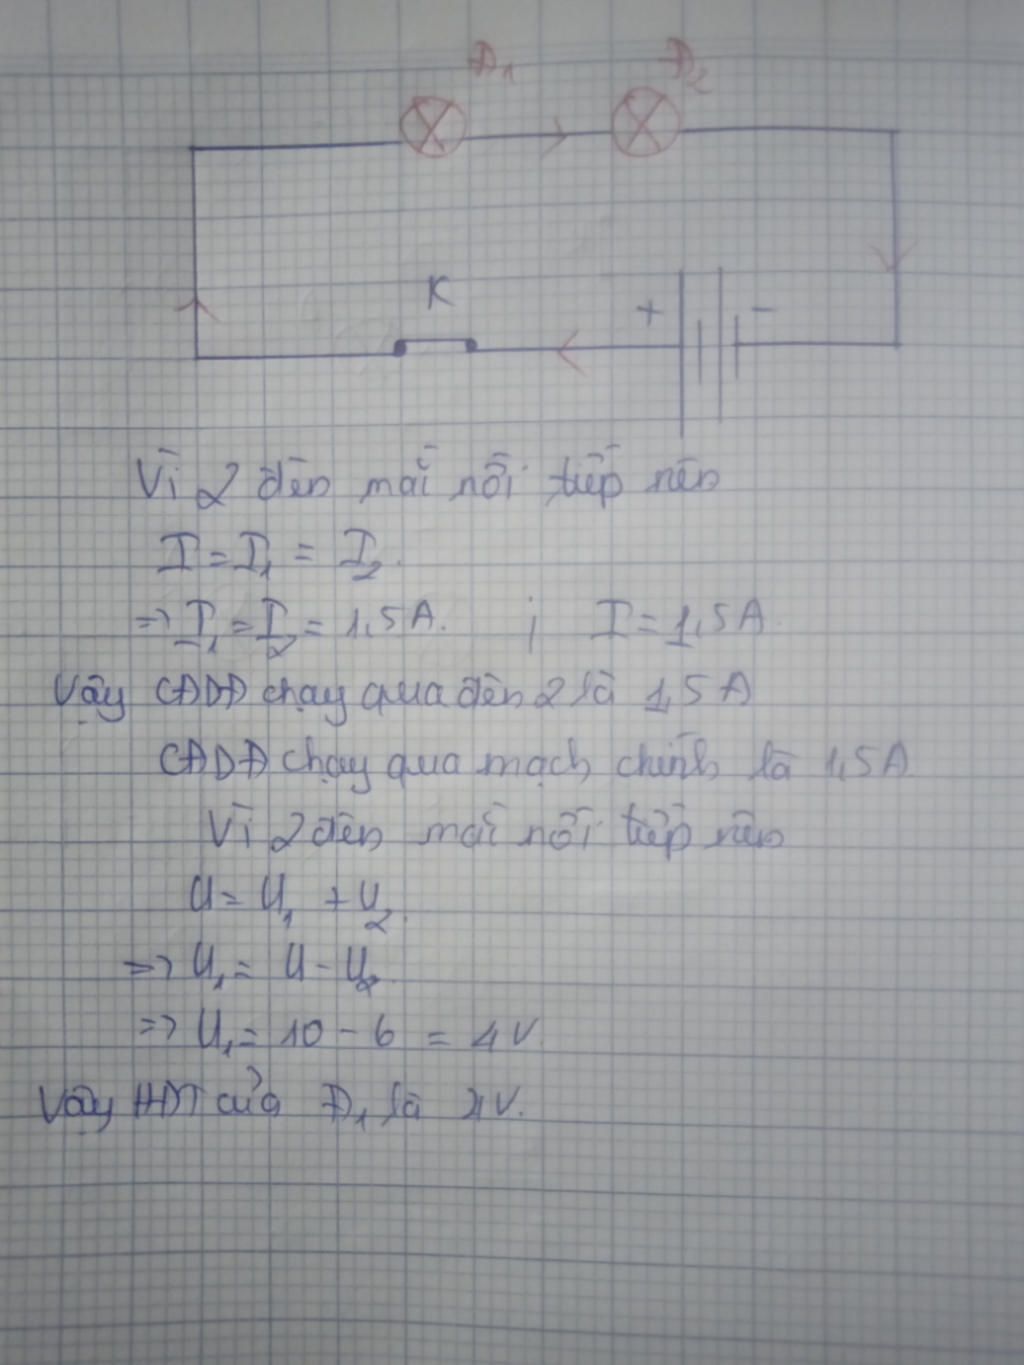 Đ1 Đ2
K
+ -
Vì 2 đèn mắc nối tiếp nên
I = I1 = I2.
=> I1 = I2 = 1,5A. ; I = 1,5A.
Vậy CĐDĐ chạy qua đèn 2 là 1,5A
CĐDĐ chạy qua mạch chính là 1,5A
Vì 2 đèn mắc nối tiếp nên
U = U1 + U2.
=> U1 = U - U2
=> U1 = 10 - 6 = 4V.
Vậy HĐT của Đ1 là 4V.